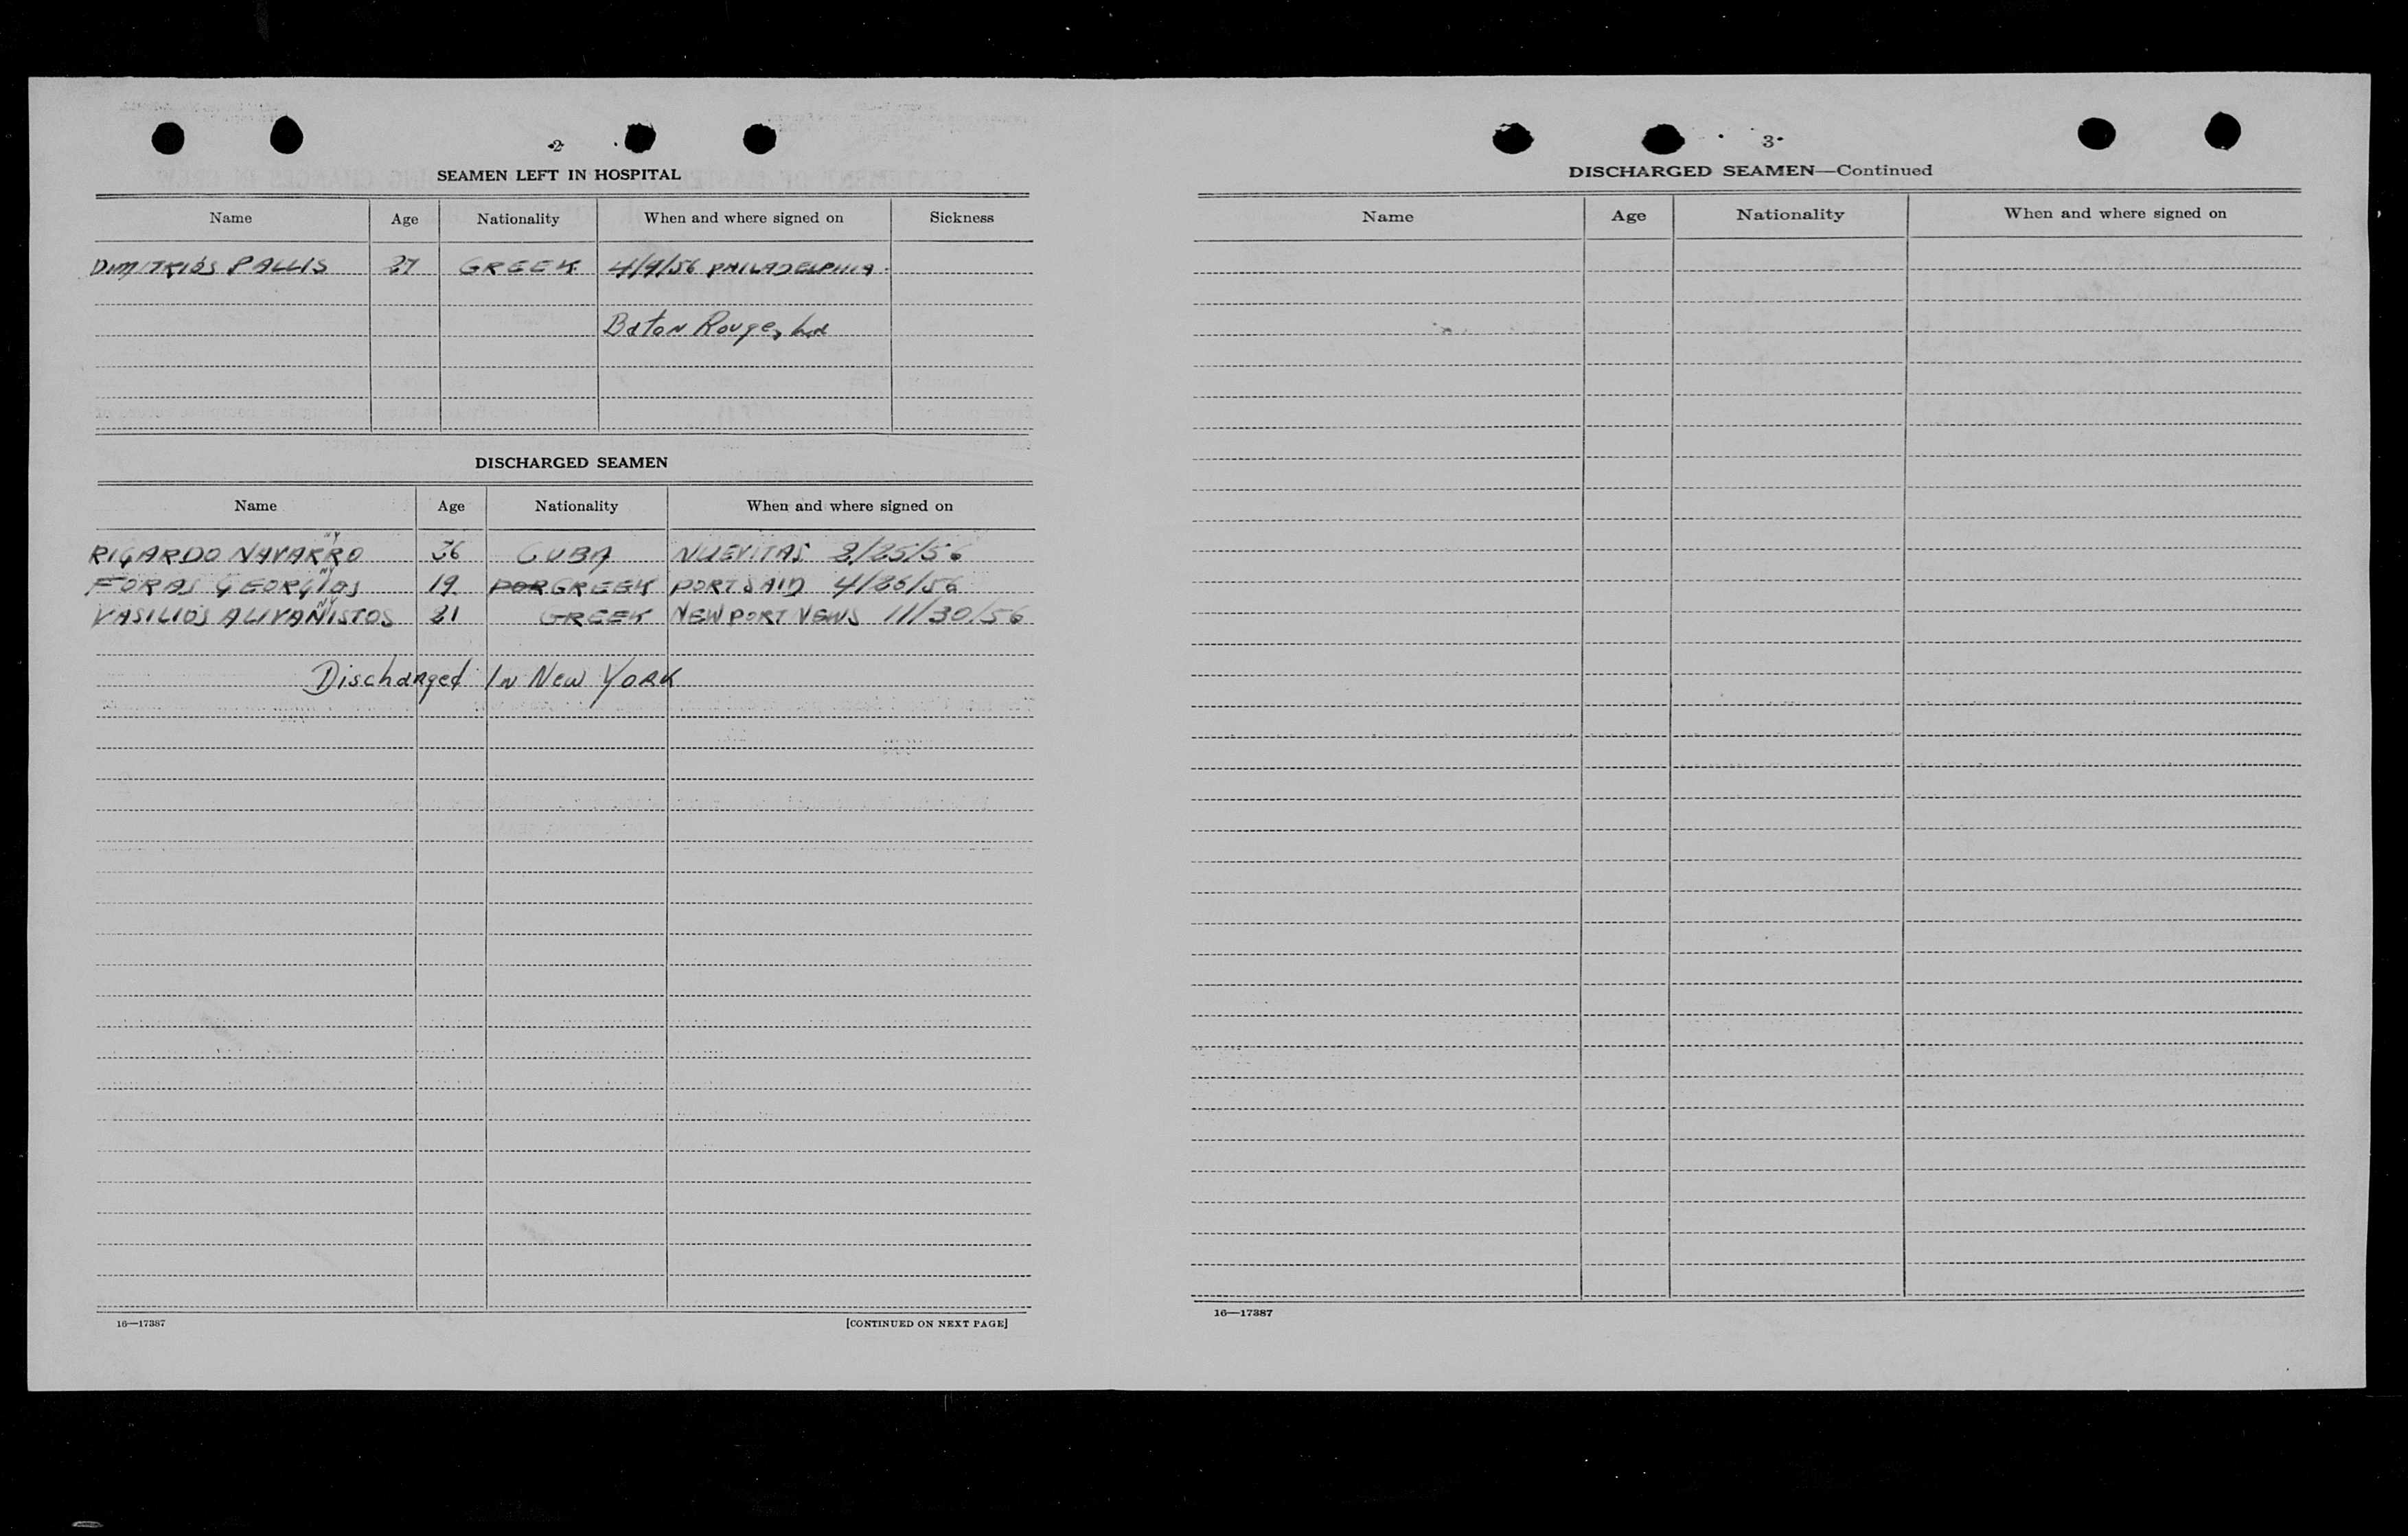 2
SEAMEN LEFT IN HOSPITAL
Name Age Nationality When and where signed on Sickness
DIMITRIOS PALLIS 27 GREEK 4/9/56 PHILADELPHIA
Baton Rouge, La
DISCHARGED SEAMEN
Name Age Nationality When and where signed on
NY
RICARDO NAVARRO 36 CUBA NUEVITAS 2/25/56
NY
FORAS GEORGIOS 19 POR GREEK PORT SAID 4/26/56
NY
VASILIOS ALIVANISTOS 21 GREEK NEWPORT NEWS 11/30/56
Discharged In New York
16—17387 [CONTINUED ON NEXT PAGE]
3
DISCHARGED SEAMEN—Continued
Name Age Nationality When and where signed on
16—17387